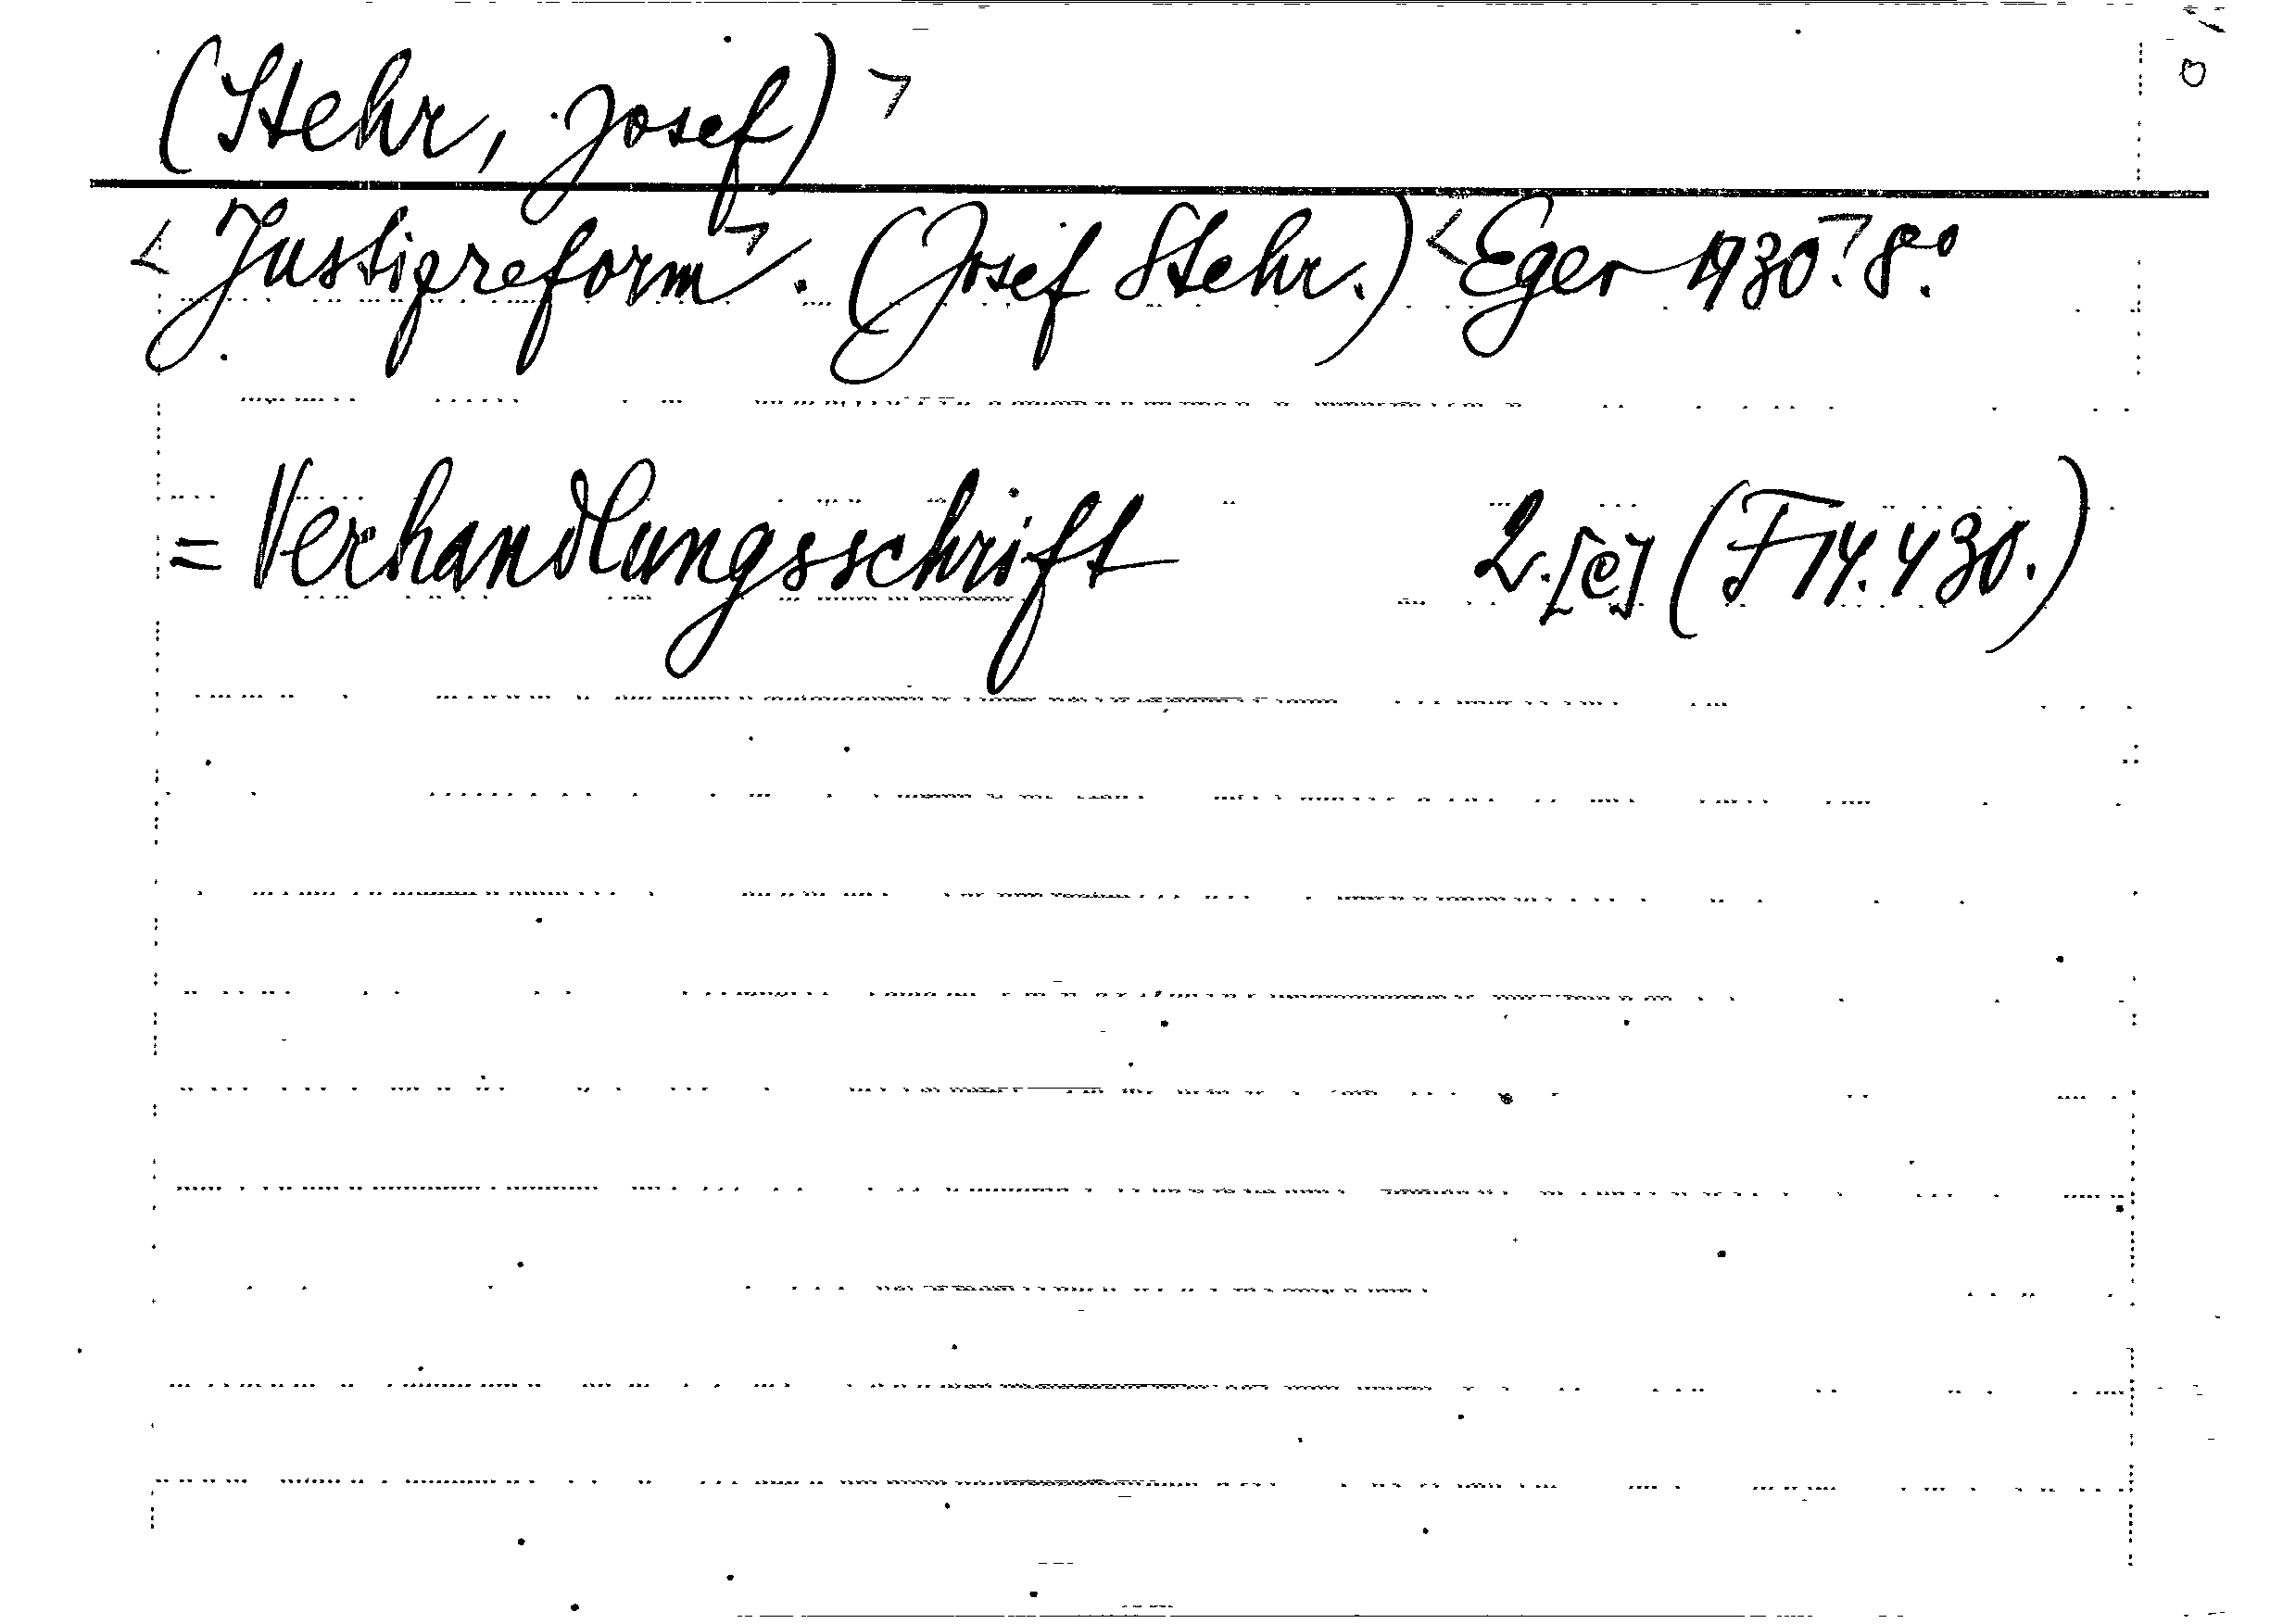 (Stehr, Josef) >
< Justizreform >. (Josef Stehr.) < Eger 1930.> 8°.
= Verhandlungsschrift 2.[e] (F 14.430.)